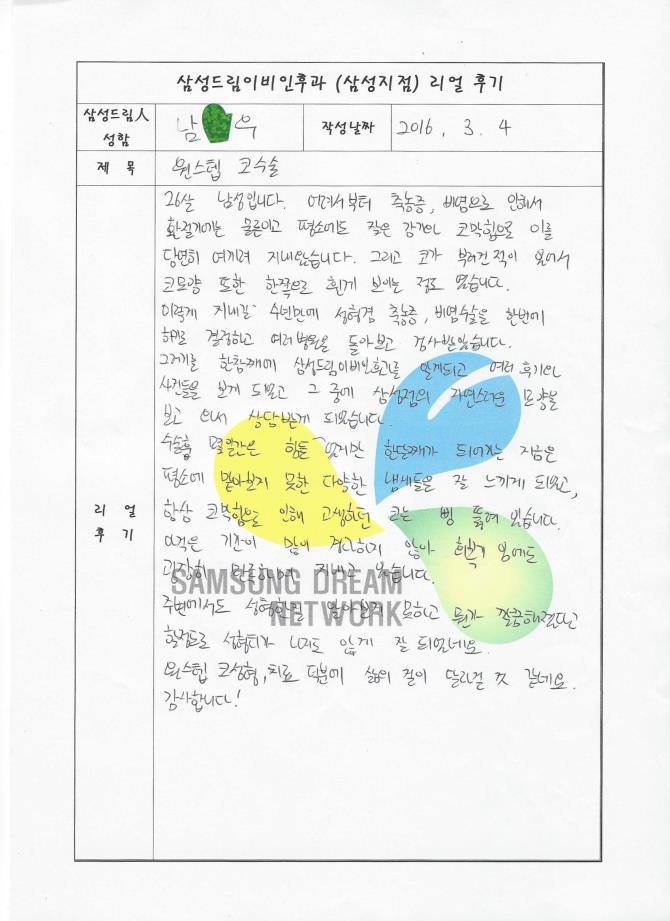 삼성드림이비인후과 (삼성지점) 리얼 후기
삼성드림人
성함
남 우
작성날짜
2016. 3. 4
제 목
원스텝 코수술
리 얼
후 기
26살 남성입니다. 어려서부터 축농증, 비염으로 인해서
환절기에는 물론이고 평소에도 잦은 감기와 코막힘으로 이를
당연히 여기며 지내왔습니다. 그리고 코가 부러진적이 있어서
코모양 또한 한쪽으로 휜게 보이는 정도 였습니다.
이렇게 지내길 수년만에 성형겸 축농증, 비염수술을 한번에
하기로 결정하고 여러병원을 돌아보고 검사받았습니다.
그러기를 한참째에 삼성드림이비인후과를 알게되고 여러 후기와
사진들을 보게 되었고 그 중에 삼성점의 자연스러운 모양을
보고 와서 상담받게 되었습니다.
수술후 몇일간은 힘들었지만 한달째가 되어가는 지금은
평소에 맡아보지 못한 다양한 냄새들을 잘 느끼게 되었고,
항상 코막힘으로 인해 고생하던 코는 뻥 뚫려 있습니다.
아직은 기간이 많이 경과하지 않아 회복기 임에도
굉장히 만족하며 지내고 있습니다.
SAMSUNG DREAM
NETWORK
주변에서도 성형한걸 알아보지 못하고 뭔가 깔끔해졌다고
할정도로 성형티가 나지도 않게 잘 되었네요.
원스텝 코성형, 치료 덕분에 삶의 질이 달라질 것 같네요.
감사합니다!